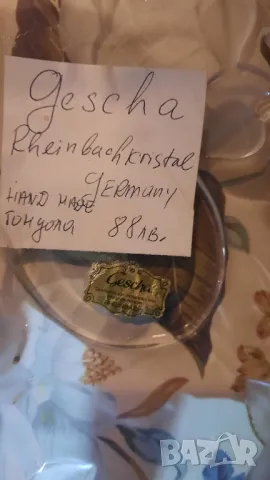 Gescha
Rheinbachkristal
GERMANY
HAND MADE
ГОНДОЛА 88лв.
Gescha
BAZAR